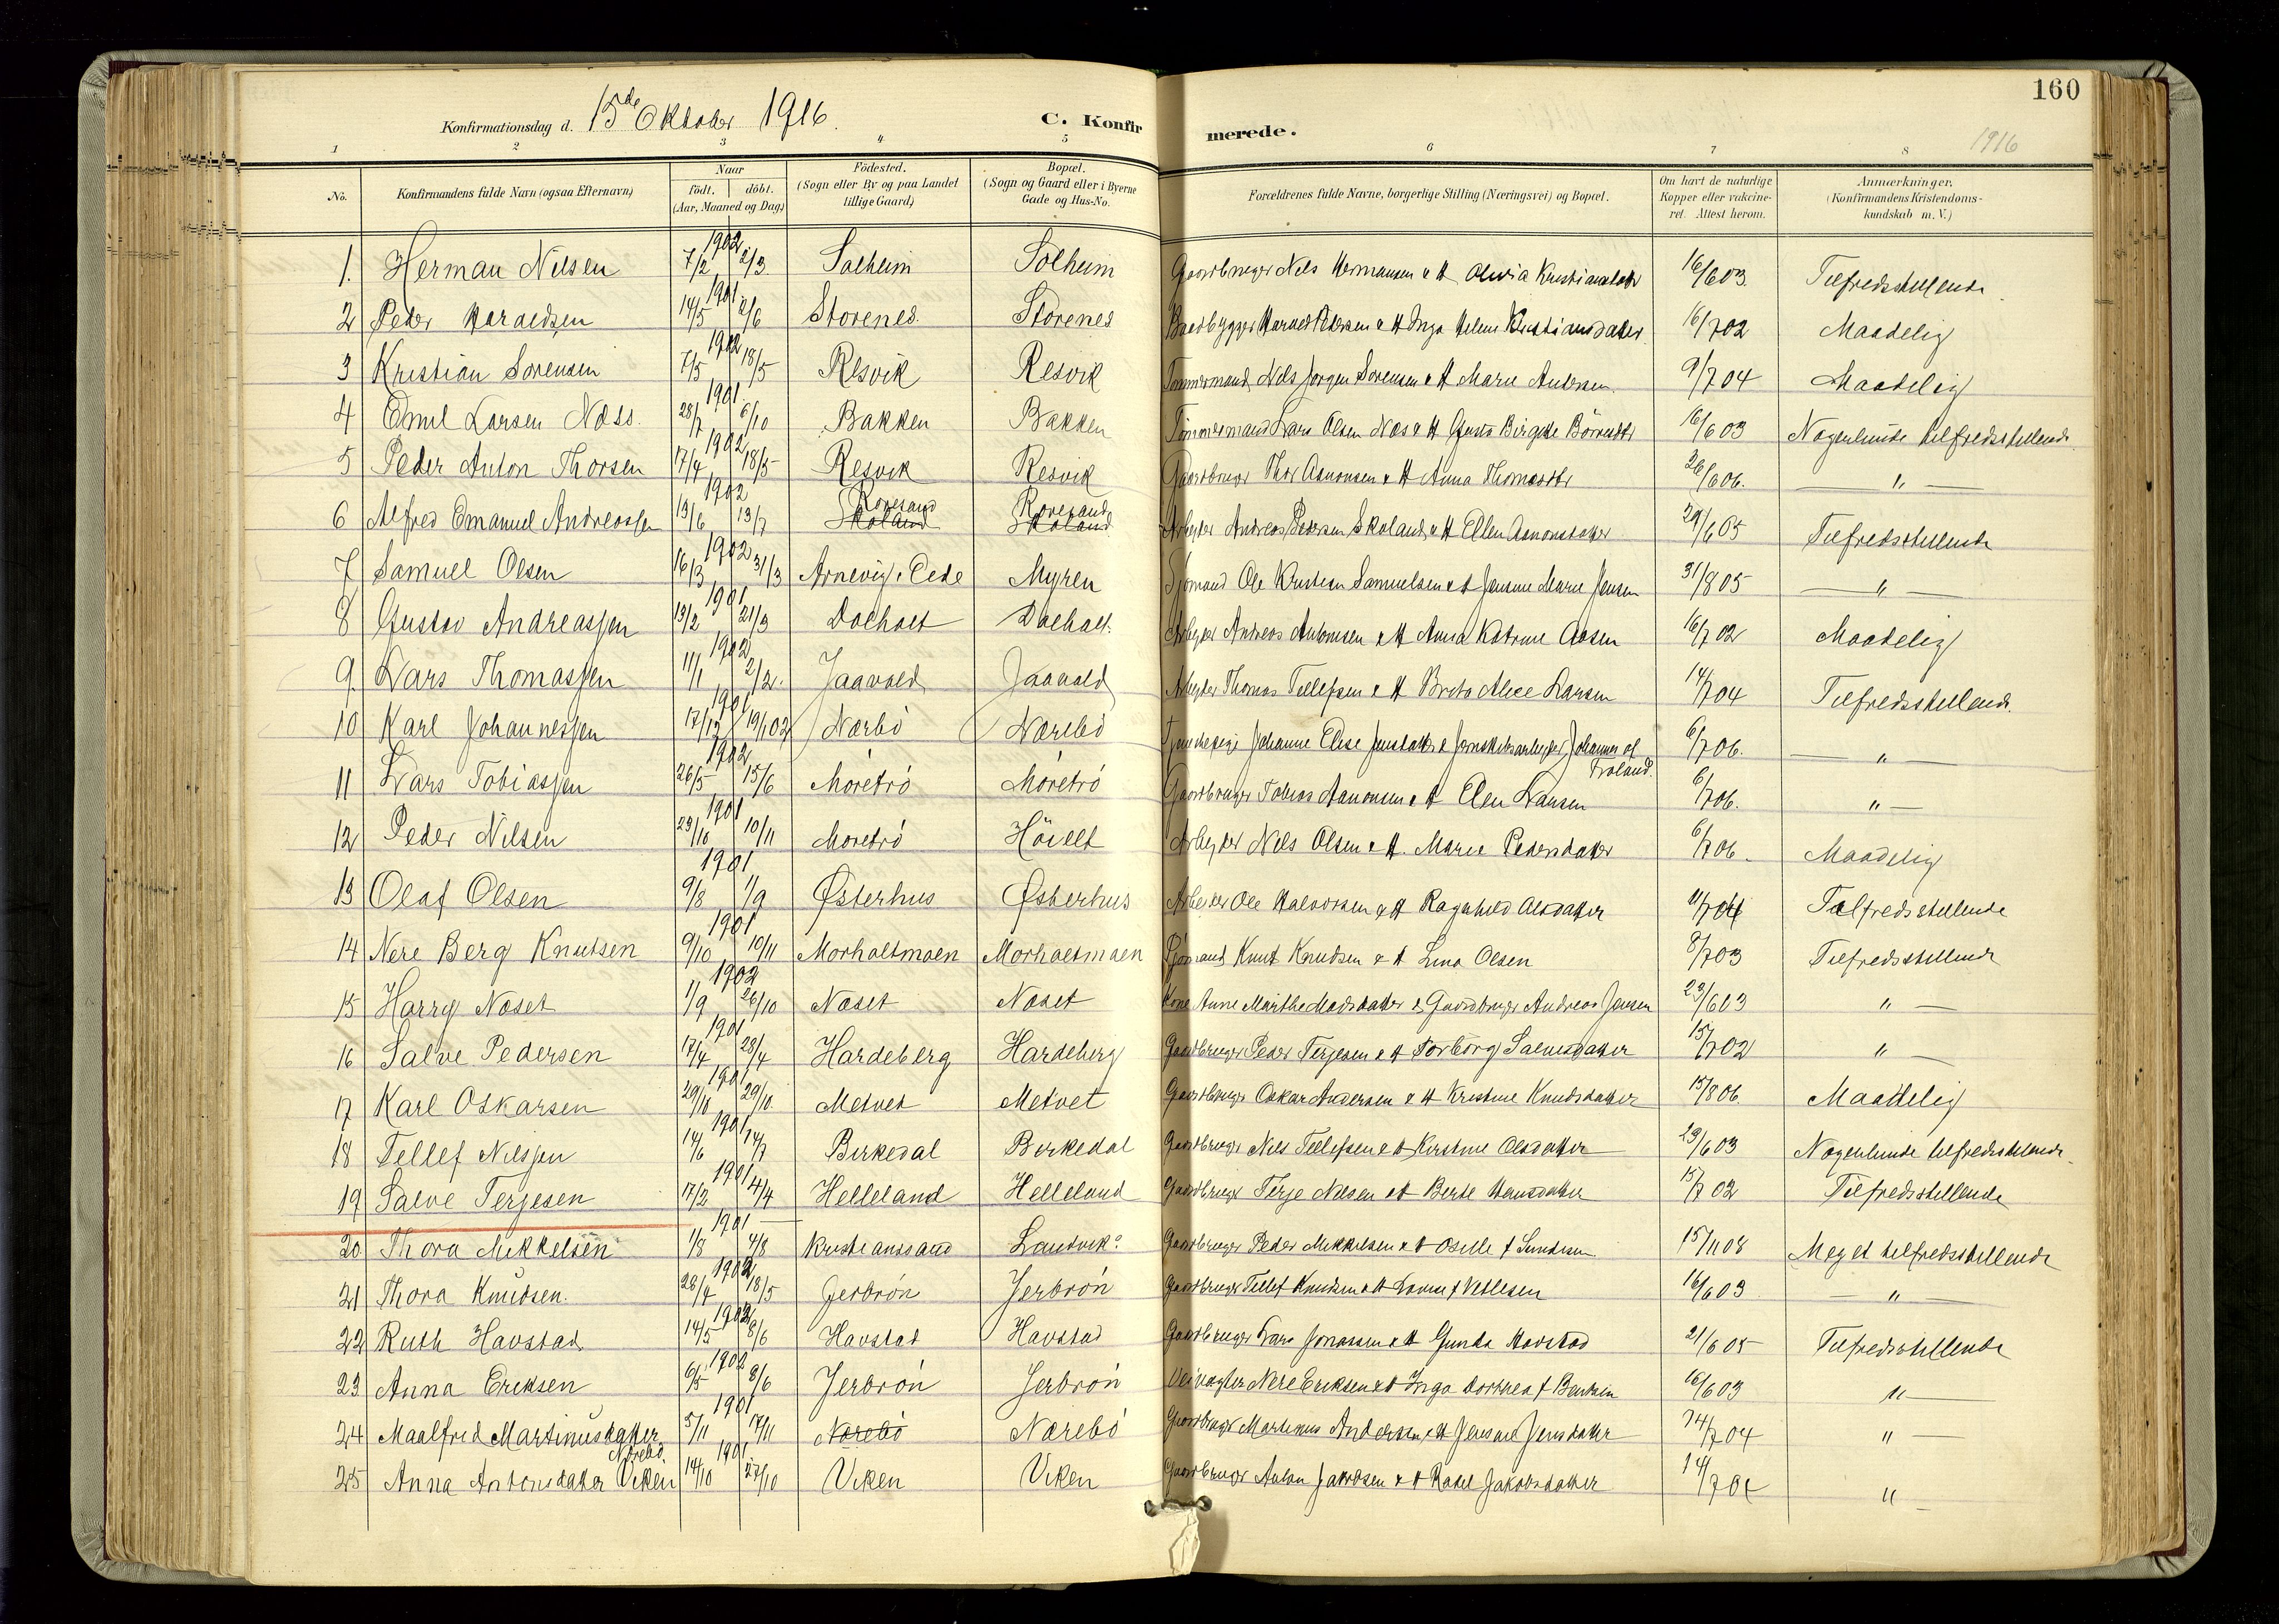 160
Konfirmationsdag d. 15de Oktober 1916. C. Konfirmerede.
1916
1 2 3 4 5 6 7 8
No. Konfirmandens fulde Navn (ogsaa Efternavn) Naar født. døbt. (Aar, Maaned og Dag) Fødested. (Sogn eller By og paa Landet tillige Gaard) Bopæl. (Sogn og Gaard eller i Byerne Gade og Hus-No. Forældrenes fulde Navne, borgerlige Stilling (Næringsvei) og Bopæl. Om havt de naturlige Kopper eller vakcineret. Attest herom. Anmærkninger. (Konfirmandens Kristendomskundskab m. V.)
1. Herman Nilsen 1902 7/2 2/3 Solheim Solheim Gaardbruger Nils Hermansen & H Olivia Kristiansdatter 16/6 03. Tilfredsstillende
2 Peder Haraldsen 1901 14/5 2/6 Storenes Storenes Baadbygger Harald Pedersen & H Inga Helene Kristiansdatter 16/7 02 Maadelig
3 Kristian Sørensen 1902 7/5 18/5 Resvik Resvik Tømmermand Nils Jørgen Sørensen & H Marie Andersen 9/7 04 Maadelig
4 Emil Larsen Næss. 1901 28/7 6/10 Bakken Bakken Tømmermand Lars Olsen Næs & H Gusta Birgitte 16/6 03 Nogenlunde tilfredsstillende
5 Peder Anton Thorsen 1902 17/4 18/5 Resvik Resvik Gaardbruger Thor Aanonsen & H Anna Thomasdtr 26/6 06. — " —
6 Alfred Emanuel Andreassen 1902 13/6 13/7 Roresand Skoland Roresand Skoland Arbeider Andreas Pedersen Skoland & H Ellen Aanonsdatter 29/6 05 Tilfredsstillende
7 Samuel Olsen 1902 16/3 31/3 Arnevig, Eide Myren Sjømand Ole Kristian Samuelsen & H Jensine Marie Jensen 31/8 05 — " —
8 Gustav Andreassen 1901 13/2 21/3 Dalholt Dalholt. Arbeider Andreas Antonsen & H Anna Katrine Aasen 16/7 02 Maadelig
9. Lars Thomassen 1902 11/1 2/2. Jaavold Jaavold Arbeider Thomas Tellefsen & H Berta Alice Larsen 14/7 04 Tilfredsstillende.
10 Karl Johannessen 1901 17/12 19/1 02 Nærbö Nærebö Tjenestepige Johanne Elise Jensdatter & Johannes af Froland. 6/7 06. — " —
11 Lars Tobiassen 1902 26/5 15/6 Moretrö Moretrö Gaardbruger Tobias Aanonsen & H Elen Larsen 6/7 06. " —
12 Peder Nilsen 1901 23/10 10/11 Moretrö Arbeider Nils Olsen & H. Marie Pedersdatter 6/7 06. Maadelig
13 Olaf Olsen 1901 9/8 1/9 Østerhus Østerhus Arbeider Ole Halvorsen & H Ragnhild Olsdatter Tilfredsstillende
14 Nere Berg Knutsen 1901 9/10 10/11 Morholtmoen Morholtmoen Sjømand Knut Knudsen & H Lina Olsen 8/7 03 Tilfredsstillende
15 Harry Noset 1902 1/9 26/10 Noset Noset Kone Anne Marthe Madsdatter & Gaardbruger Andreas Jensen 23/6 03 " —
16 Salve Pedersen 1901 17/4 28/4 Hardeberg Hardeberg Gaardbruger Peder Terjesen & H Torborg Salvesdatter 15/7 02 " —
17 Karl Oskarsen 1901 29/10 Metvet Metvet Gaardbruger Oskar Andersen & H Kristine Knudsdatter 15/8 06. Maadelig
18 Tellef Nilssen 1901 14/6 14/7 Birkedal Birkedal Gaardbruger Nils Tellefsen & H Kirstine Olsdatter 23/6 03 Nogenlunde tilfredsstillende
19 Salve Terjesen 1901 17/2 4/4 Helleland Helleland Gaardbruger Terje Nilsen & H Berte Hansdatter 15/7 02 Tilfredsstillende
20 Thora Mikkelsen 1901 1/8 4/8 Kristianssand Landvik Gaardbruger Peder Mikkelsen & H f 15/11 08 Meget tilfredsstillende
21 Thora Knudsen. 1902 28/4 18/5 Jerbrön Jerbrön Gaardbruger Tellef Knudsen & H f Vetlesen 16/6 03 — " —
22 Ruth Havstad 1902 14/5 8/6 Havstad Havstad Gaardbruger Lars Jonassen & H Gunda Havstad 21/6 05 Tilfredsstillende
23 Anna Eriksen 1902 6/5 8/6 Jerbrön Jerbrön Veivogter Nere Eriksen & H Inga Dorthea f 16/6 03 " —
24 Maalfred Martinusdatter Nærebö. 1901 5/11 17/11 Nærebö Nærebö Gaardbruger Martinus Andersen & H Jensine Jensdatter 14/7 04 " —
25 Anna Antonsdatter Viken 1901 14/10 27/10 Viken Viken Gaardbruger Anton Jakobsen & H Rakel Jakobsdatter 14/7 04 " —